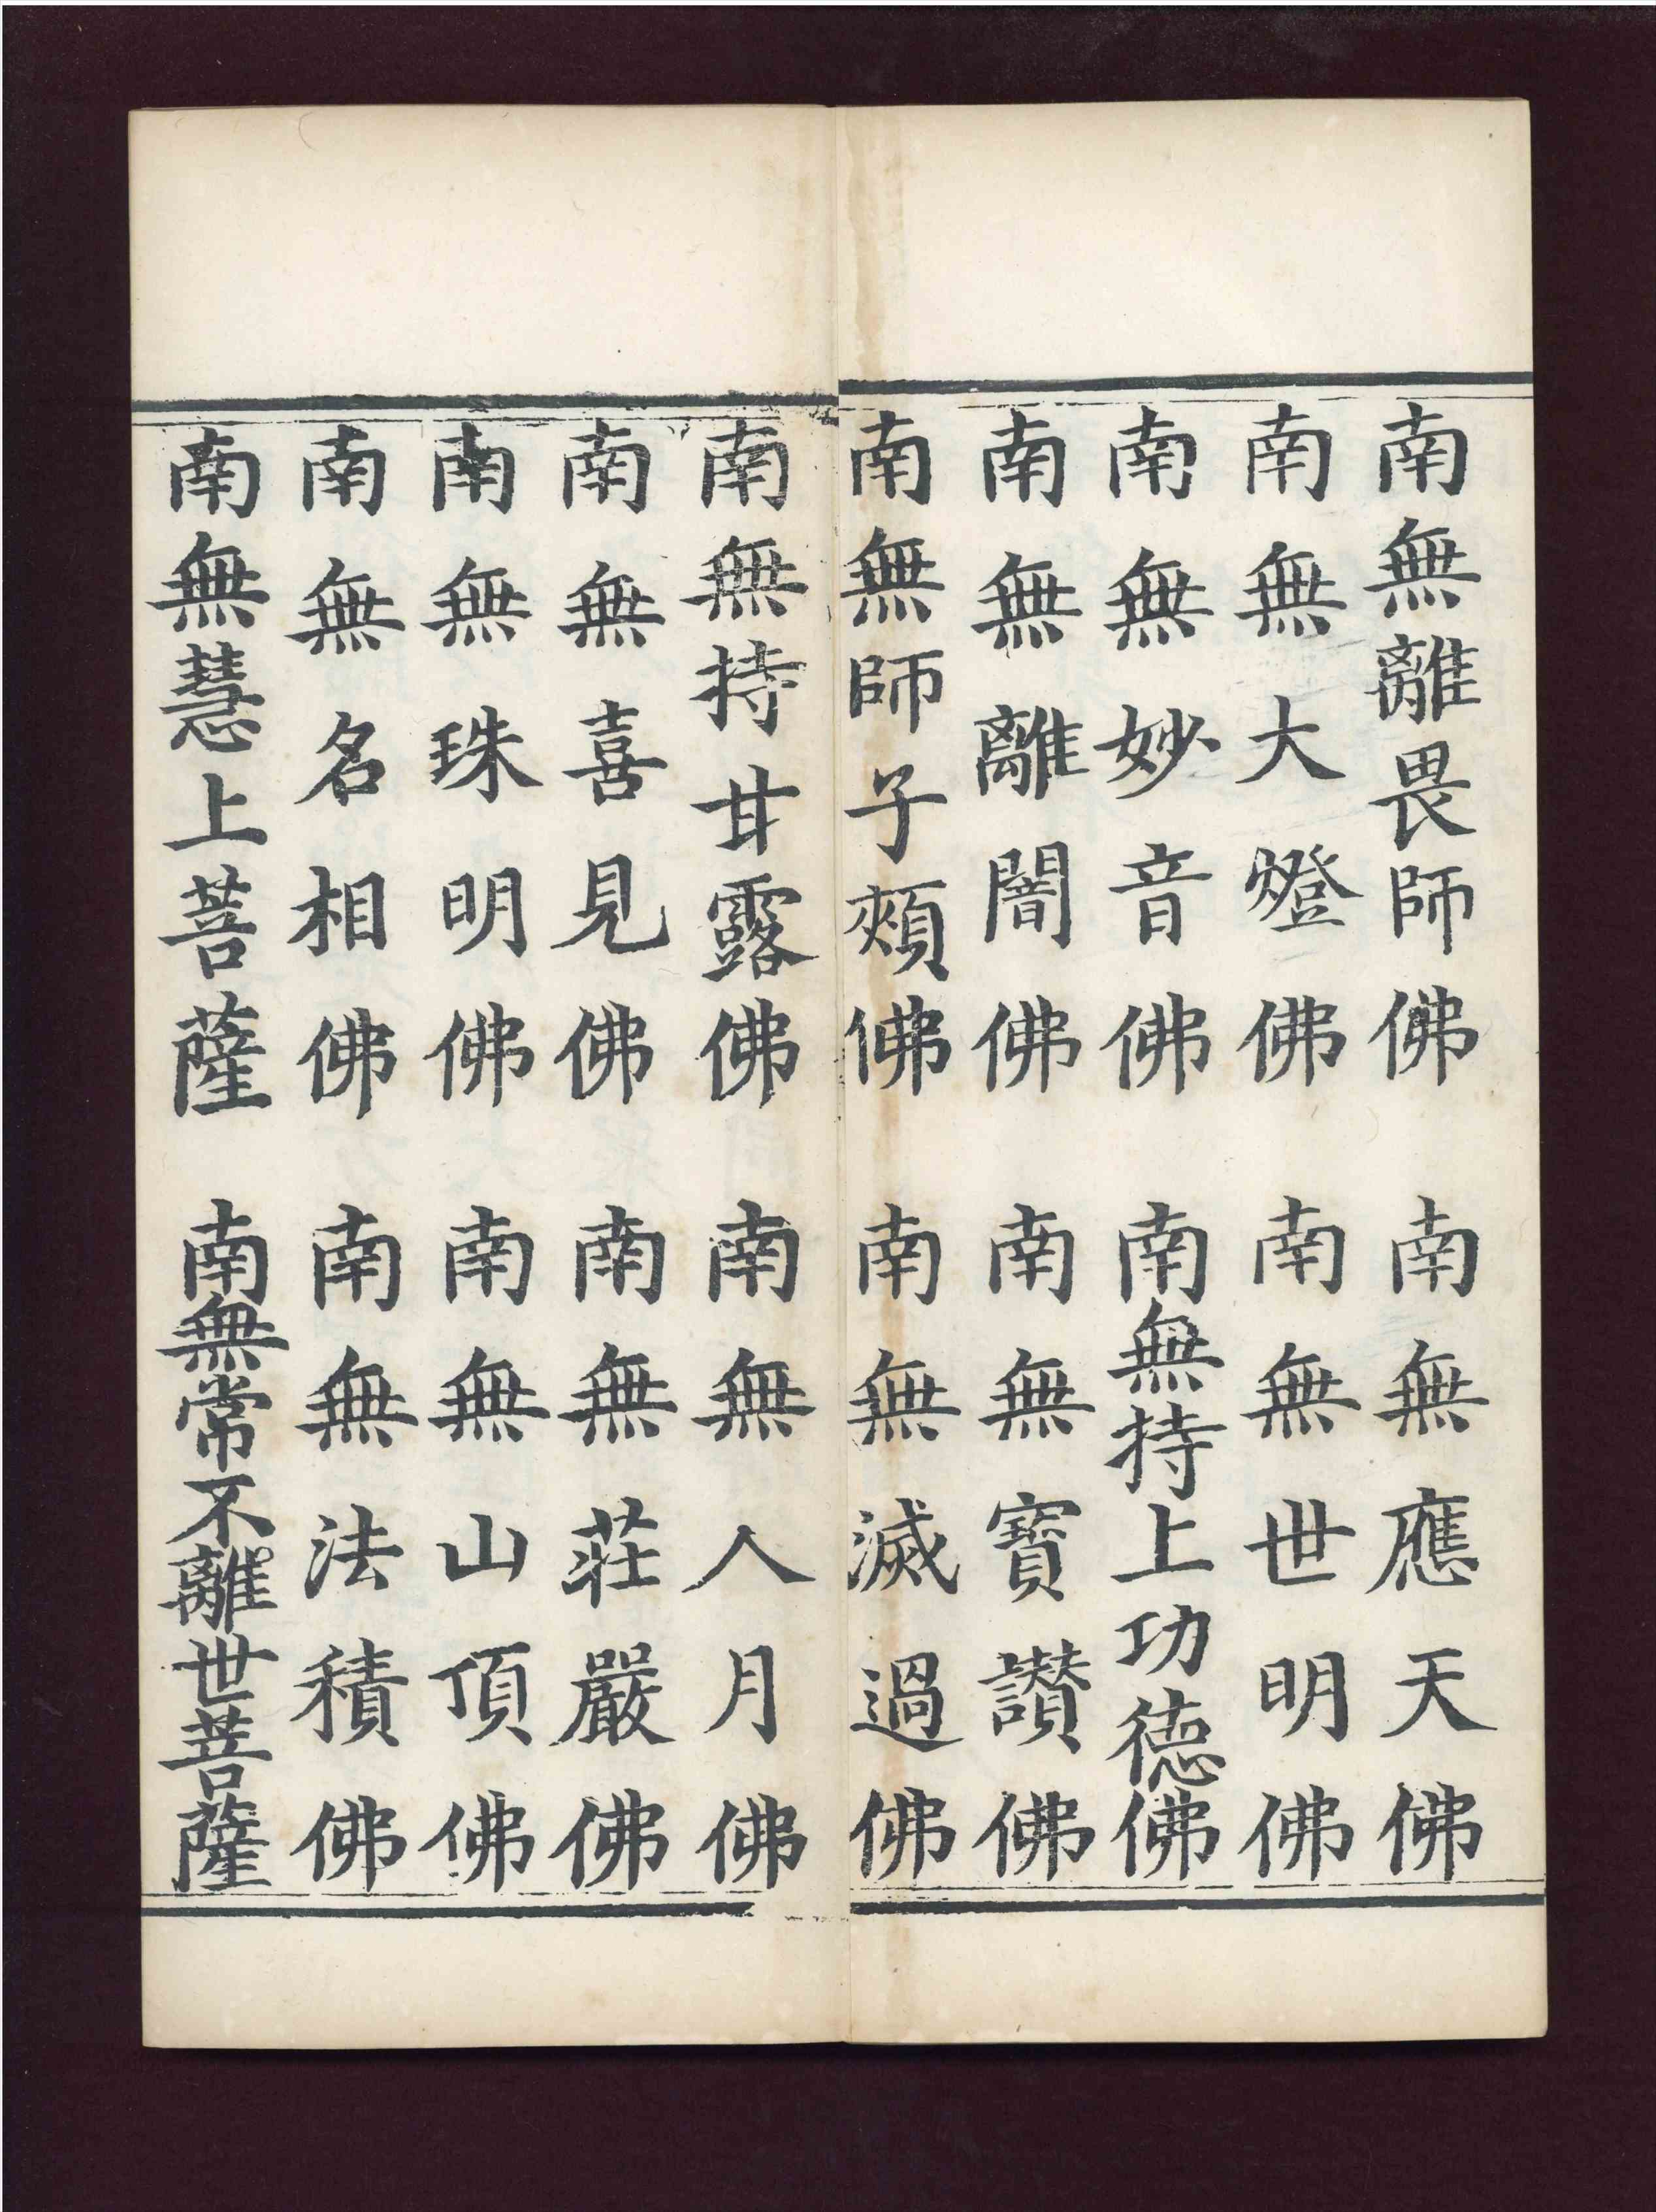 南無離畏師佛 南無應天佛
南無大燈佛 南無世明佛
南無妙音佛 南無持上功德佛
南無離闇佛 南無寶讃佛
南無師子頰佛 南無滅過佛
南無持甘露佛 南無人月佛
南無喜見佛 南無莊嚴佛
南無珠明佛 南無山頂佛
南無名相佛 南無法積佛
南無慧上菩薩 南無常不離世菩薩